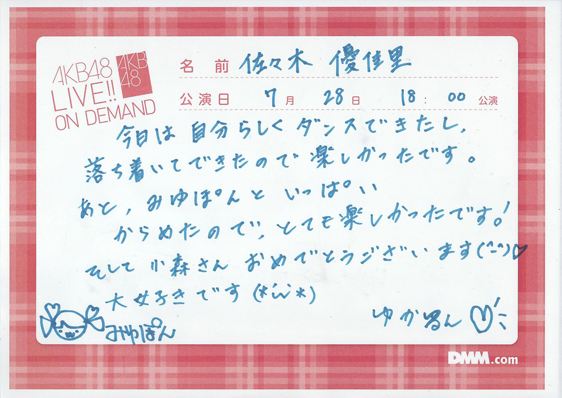 AKB48
LIVE!!
ON DEMAND
AKB
48
名前 佐々木 優佳里
公演日 7月 28日 18:00 公演
今日は 自分らしく ダンスできたし、
落ち着いてできたので 楽しかったです。
あと、みゆぽんと いっぱい
からめたので、とても楽しかったです!
そして 小森さん おめでとうございます(^-^)♡
大好きです (*´ω`*)
みゆぽん
ゆかるん♡
DMM.com